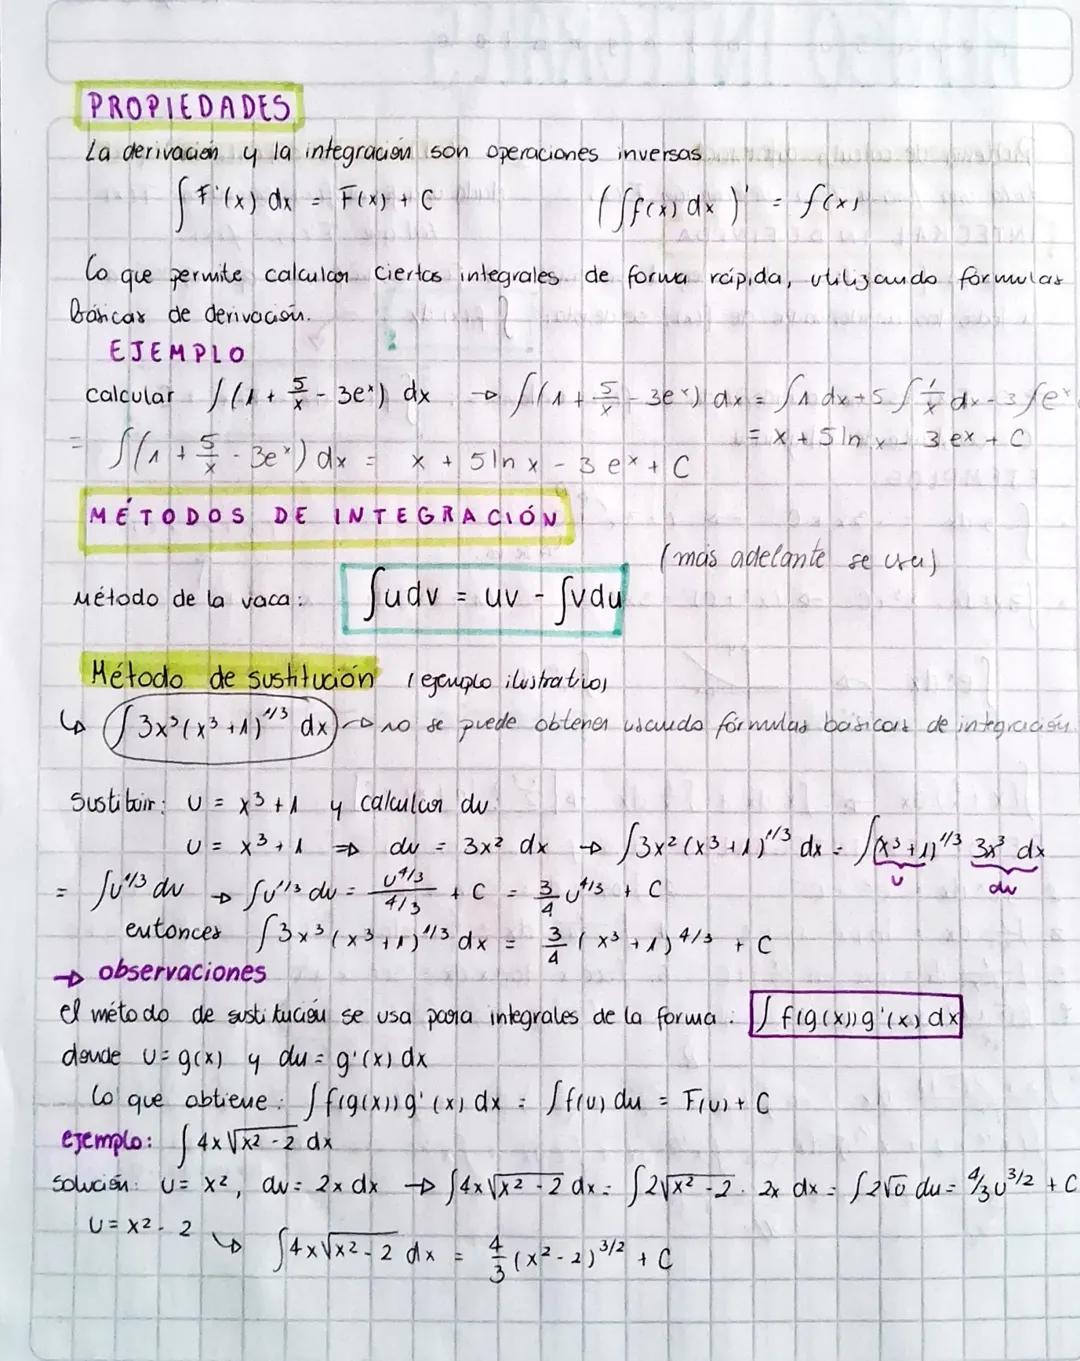 PROPIEDADES
La derivación y la integración son operaciones inversas
∫ F'(x) dx = F(x) + C (∫f(x) dx)' = f(x)
Lo que permite calcular ciertas integrales de forma rápida, utilizando fórmulas
básicas de derivación.
EJEMPLO
calcular ∫(1 + 5/x - 3eˣ) dx → ∫(1 + 5/x - 3eˣ) dx = ∫1 dx + 5 ∫ 1/x dx - 3 ∫eˣ
= x + 5 ln x - 3 eˣ + C
= ∫(1 + 5/x - 3eˣ) dx = x + 5 ln x - 3 eˣ + C
MÉTODOS DE INTEGRACIÓN
(más adelante se usa)
Método de la vaca: ∫udv = uv - ∫vdu
Método de sustitución (ejemplo ilustrativo)
↳ ∫3x³(x³+1)^1/3 dx → no se puede obtener usando fórmulas básicas de integración.
Sustituir: U = x³+1 y calcular du
U = x³+1 ⇒ du = 3x² dx → ∫3x²(x³+1)^1/3 dx = ∫(x³+1)^1/3 3x³ dx
U du
= ∫U^1/3 du → ∫U^1/3 du = U^4/3 / 4/3 + C = 3/4 U^4/3 + C
entonces ∫3x³(x³+1)^1/3 dx = 3/4 (x³+1)^4/3 + C
→ observaciones
el método de sustitución se usa para integrales de la forma: ∫f(g(x))g'(x) dx
donde U=g(x) y du=g'(x) dx
Lo que obtiene: ∫f(g(x))g'(x) dx = ∫f(u) du = F(u) + C
ejemplo: ∫4x√x²-2 dx
solución: U= x², du= 2x dx → ∫4x√x²-2 dx = ∫2√x²-2 · 2x dx = ∫2√u du = 4/3 u^3/2 + C
U = x²-2 ↳ ∫4x√x²-2 dx = 4/3 (x²-2)^3/2 + C